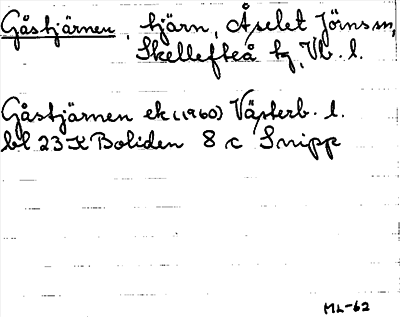 Gåstjärnen, tjärn, Åselet Jörns sn,
Skellefteå tg, Vb. l.
Gåstjärnen ek (1960) Västerb. l.
bl 23 K Boliden 8 c Snipp
ML-62